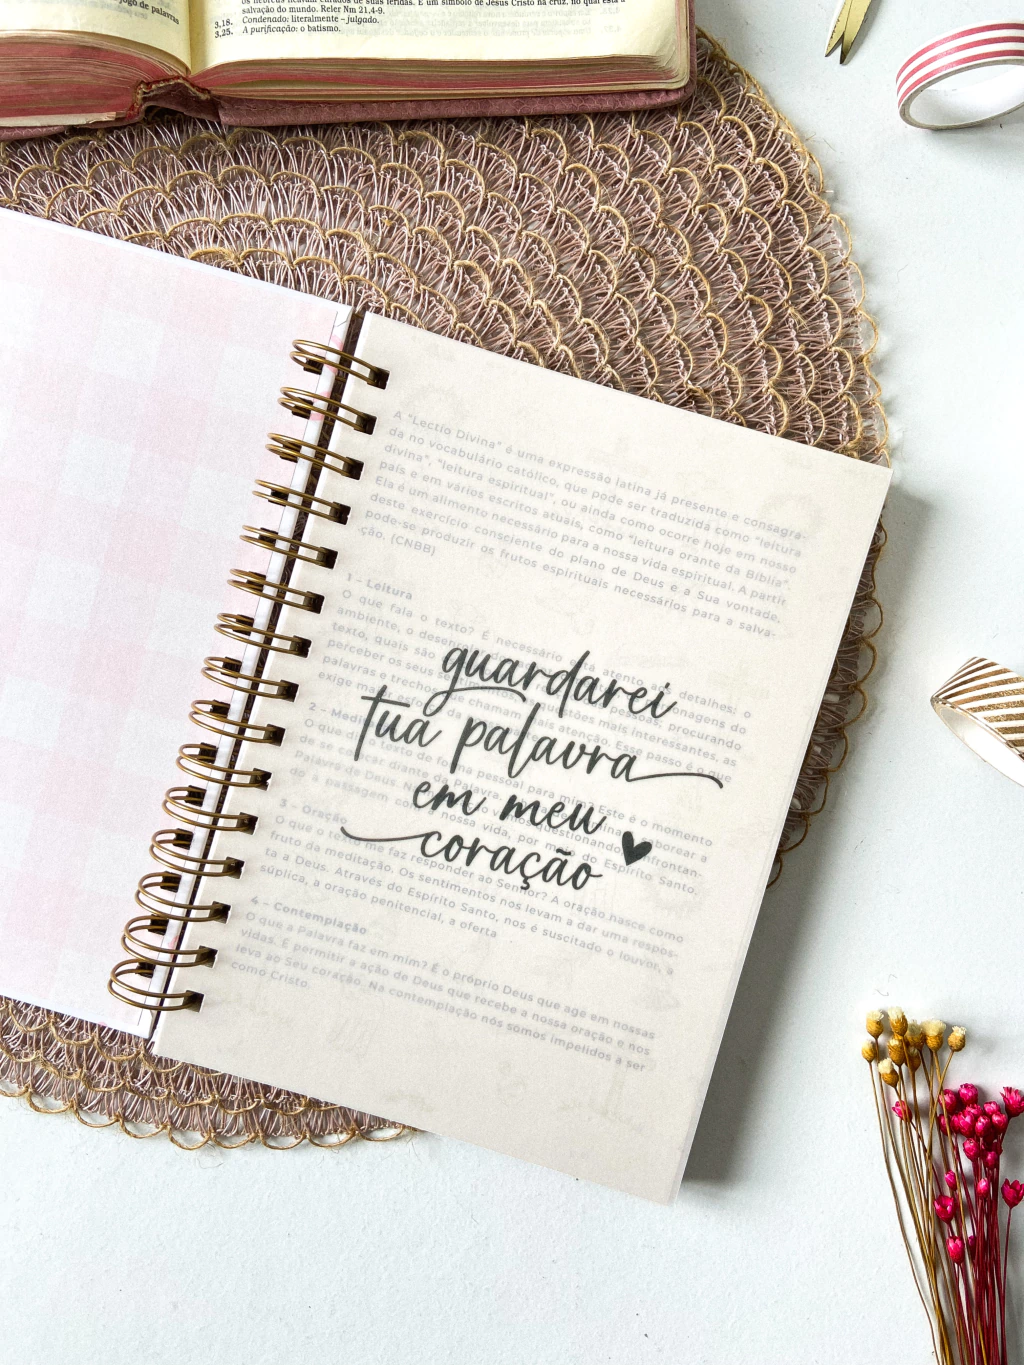 jogo de palavras
salvação do mundo. Reler Nm 21,4-9.
3,18. Condenado: literalmente – julgado.
3,25. A purificação: o batismo.
A "Lectio Divina" é uma expressão latina já presente e consagra-
da no vocabulário católico, que pode ser traduzida como "leitura
divina", "leitura espiritual", ou ainda como ocorre hoje em nosso
país e em vários escritos atuais, como "leitura orante da Bíblia".
Ela é um alimento necessário para a nossa vida espiritual. A partir
deste exercício consciente do plano de Deus e a Sua vontade,
pode-se produzir os frutos espirituais necessários para a salva-
ção. (CNBB)
1 - Leitura
O que fala o texto? É necessário atento aos detalhes: o
ambiente, o
texto, quais são
perceber os seus
palavras e trechos que chamam mais atenção. Esse passo é o que
exige
guardarei
tua palavra
em meu
coração
O que texto de forma pessoal para mim? Este é o momento
de se diante da Palavra,
Palavra de Deus.
a passagem com a nossa vida, por meio do Espírito Santo.
3 - Oração
O que o texto me faz responder ao Senhor? A oração nasce como
fruto da meditação. Os sentimentos nos levam a dar uma respos-
ta a Deus. Através do Espírito Santo, nos é suscitado o louvor, a
súplica, a oração penitencial, a oferta
4 - Contemplação
O que a Palavra faz em mim? É o próprio Deus que age em nossas
vidas. É permitir a ação de Deus que recebe a nossa oração e nos
leva ao Seu coração. Na contemplação nós somos impelidos a ser
como Cristo.